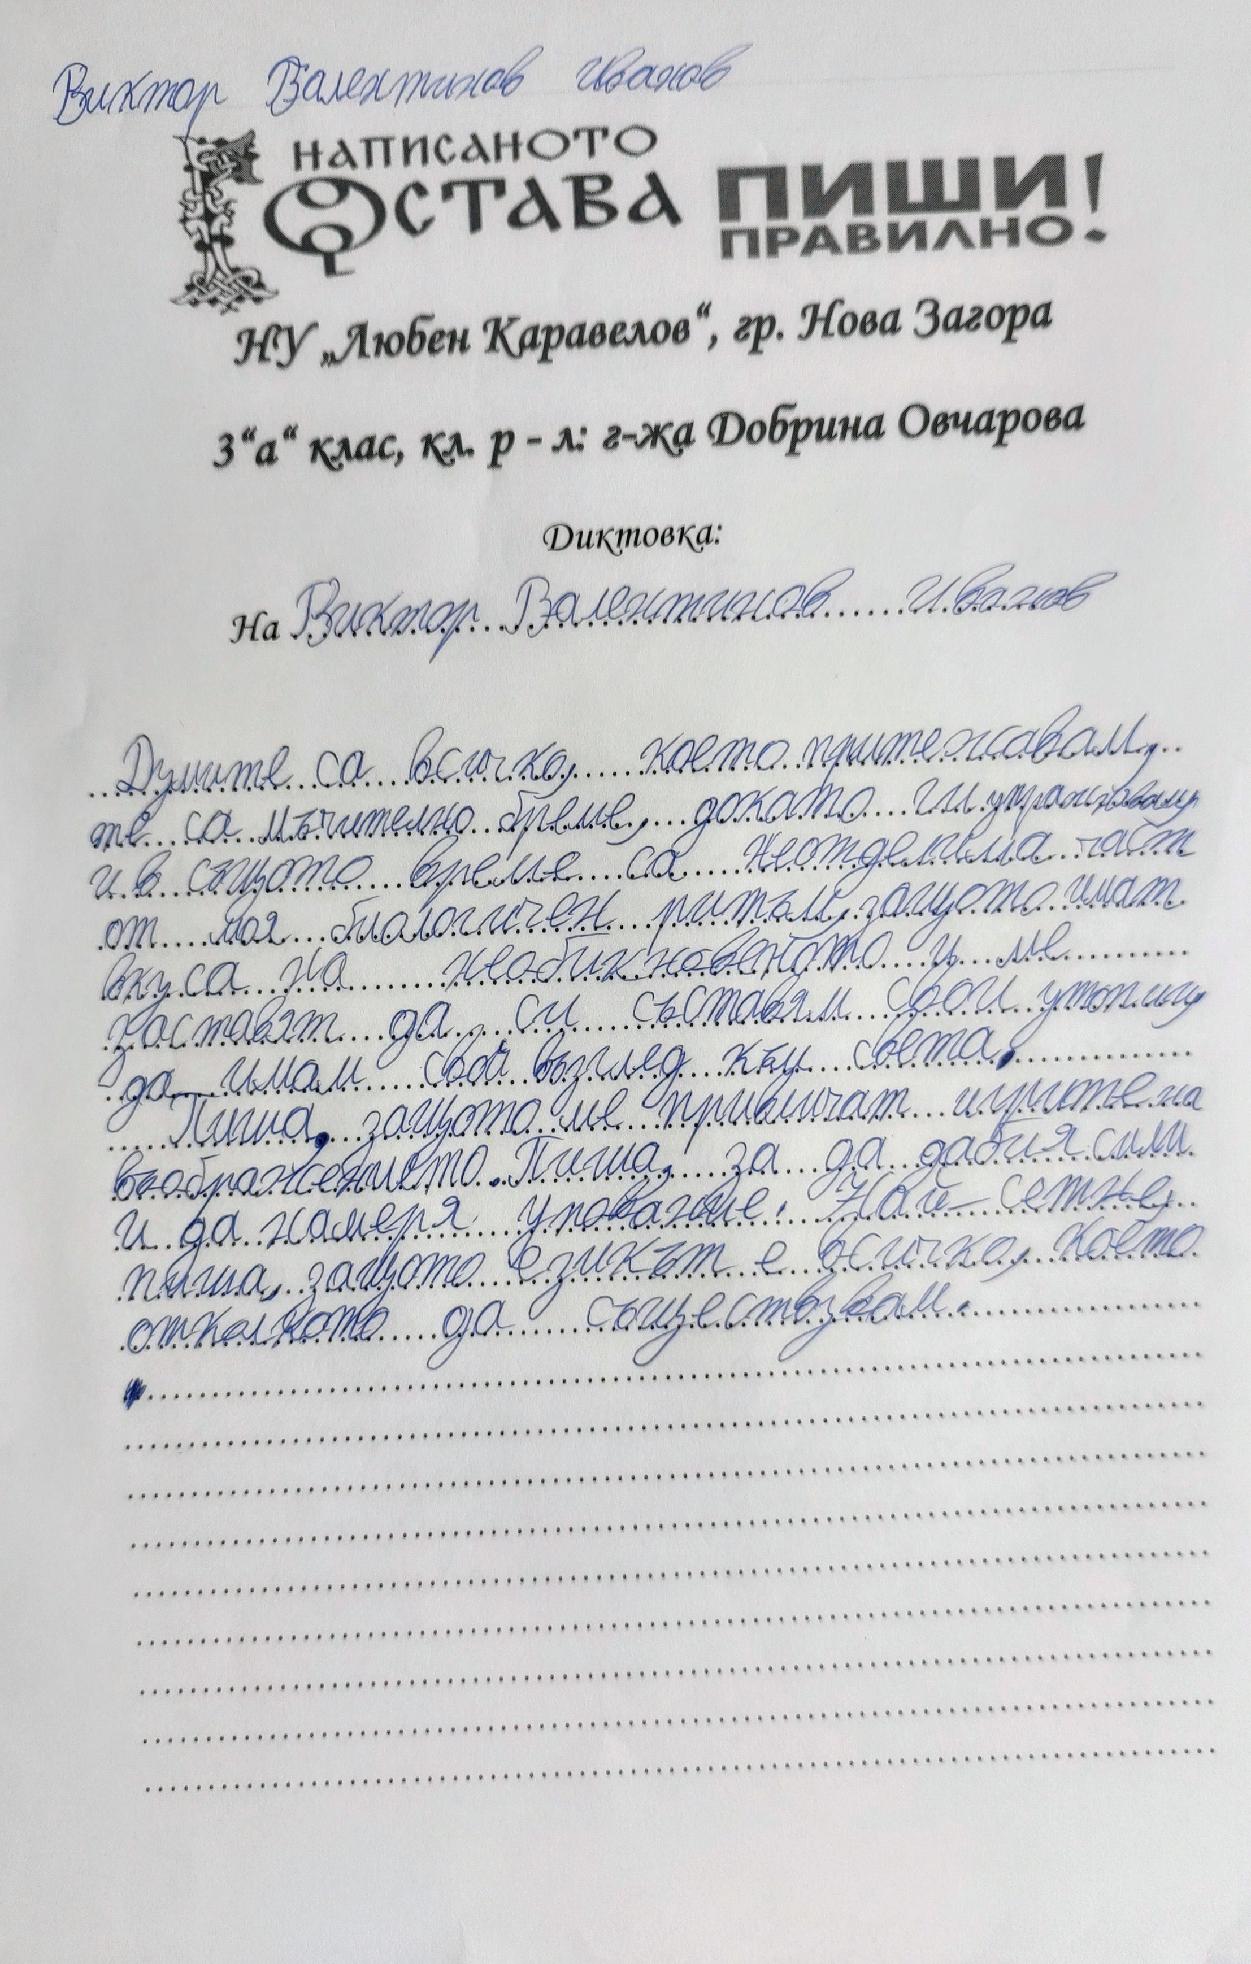 Виктор Валентинов Иванов
НАПИСАНОТО
ОСТАВА
ПИШИ
ПРАВИЛНО!
НУ „Любен Каравелов“, гр. Нова Загора
3“а“ клас, кл. р - л: г-жа Добрина Овчарова
Диктовка:
На Виктор Валентинов Иванов
Думите са всичко, което притежавам,
те са мъчително бреме, докато ги упражнявам
и в същото време са неотделима част
от моя биологичен ритъм, защото имат
вкуса на необикновеното и ме
заставят да си съставям свои утопии
да имам свой възглед към света.
Пиша, защото ме привличат игрите на
въображението. Пиша, за да добия сили
и да намеря упование. Най-сетне,
пиша, защото езикът е всичко, което
отколкото да съществувам.